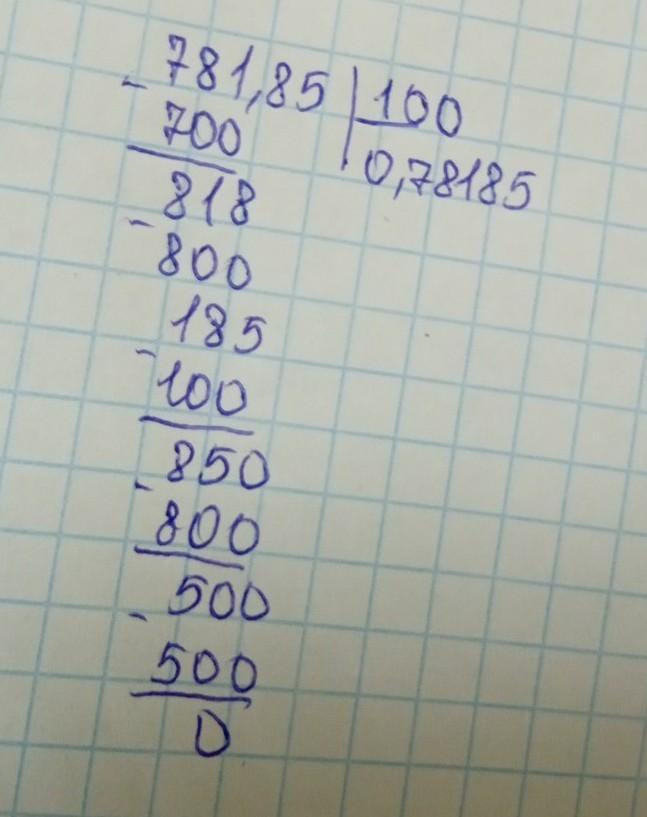 - 781,85 | 100
700
0,78185
818
- 800
185
- 100
850
- 800
500
- 500
0